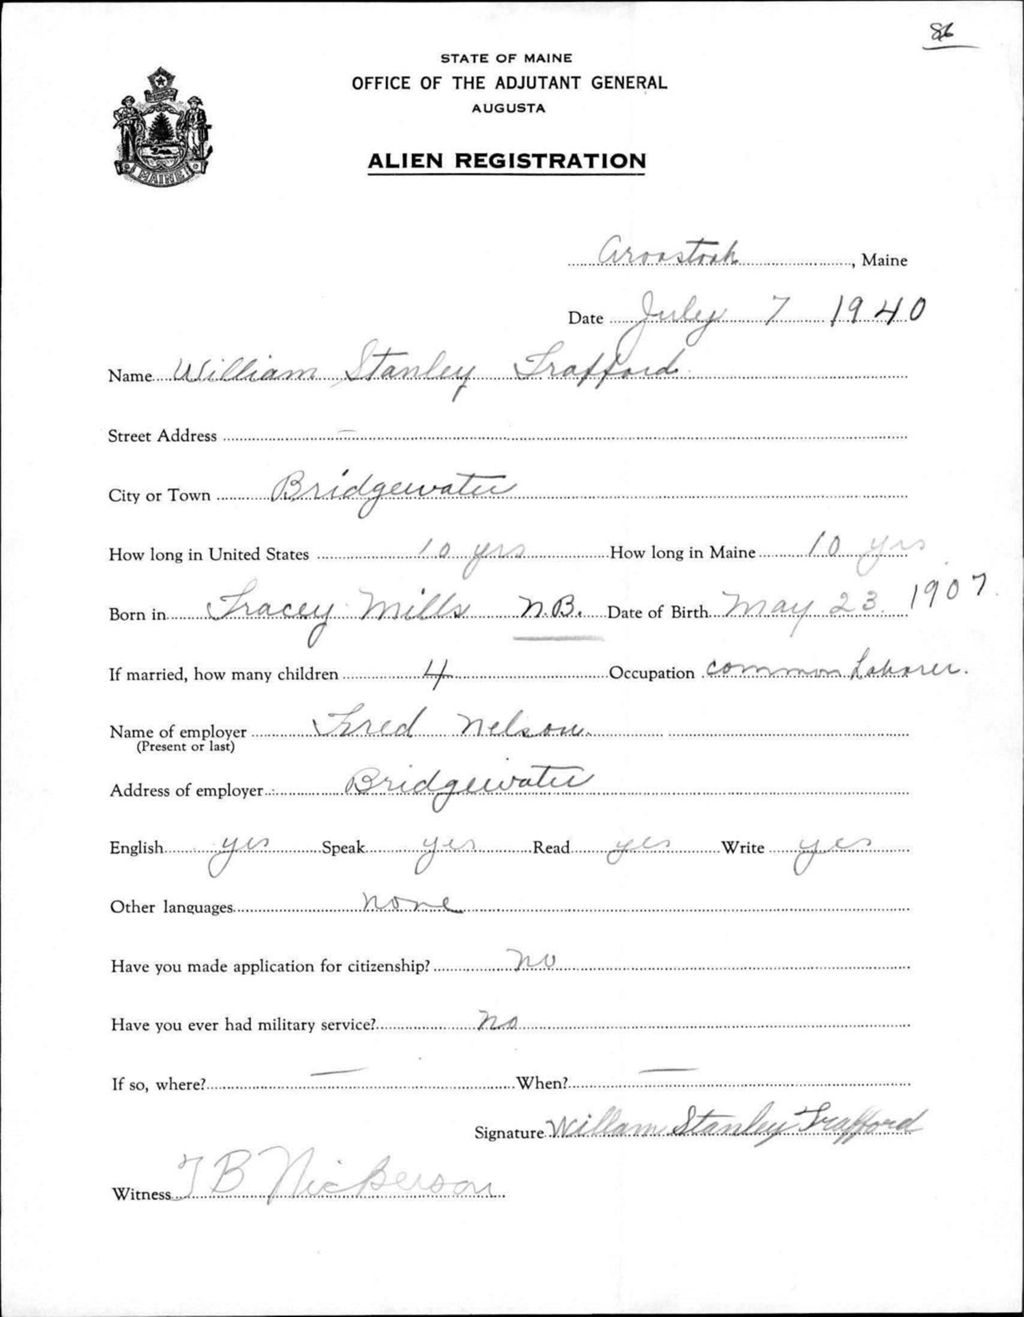 86
STATE OF MAINE
OFFICE OF THE ADJUTANT GENERAL
AUGUSTA
ALIEN REGISTRATION
MAINE
Aroostook, Maine
Date July 7 1940
Name William Stanley Trafford
Street Address —
City or Town Bridgewater
How long in United States 10 yrs How long in Maine 10 yrs
Born in Tracey Mills N.B. Date of Birth May 23 1907
If married, how many children 4 Occupation common Laborer.
Name of employer Fred Nelson
(Present or last)
Address of employer Bridgewater
English yes Speak yes Read yes Write yes
Other languages none
Have you made application for citizenship? No
Have you ever had military service? No
If so, where? — When? —
Signature William Stanley Trafford
Witness T B Nickerson